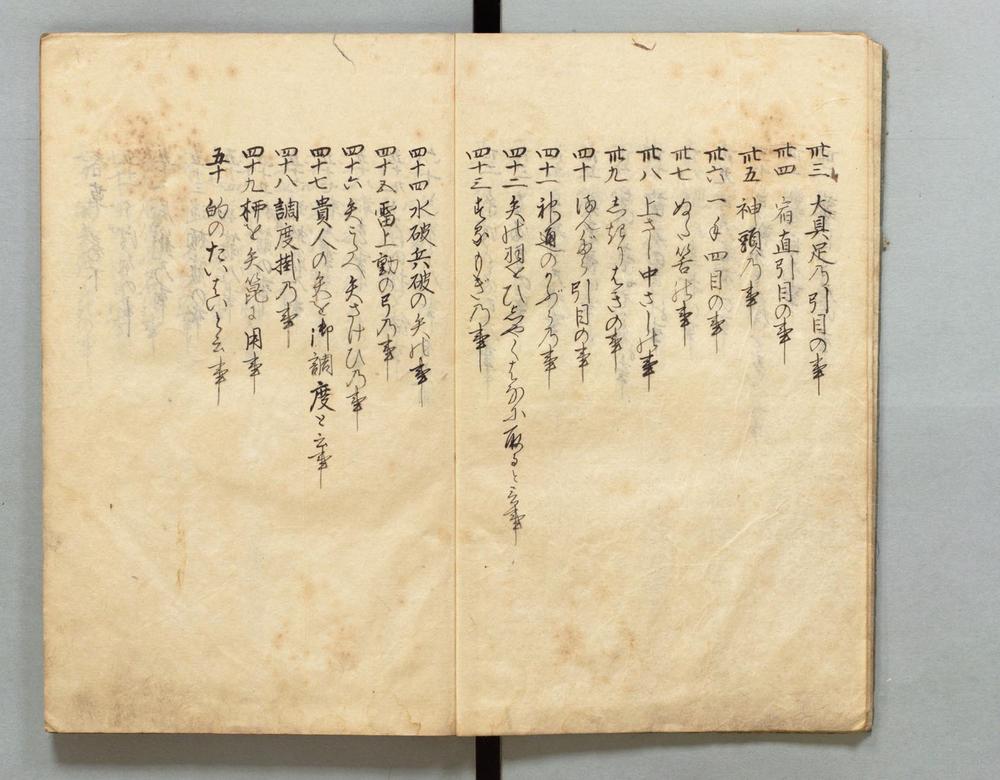 卅三 大具足乃引目の事
卅四 宿直引目の事
卅五 神頭乃事
卅六 一手四目の事
卅七 ぬた筈の事
卅八 上さし中さしの事
卅九 はきの事
四十 引目の事
四十一 神通のかぶら乃事
四十二 矢の羽をひしやくはなに取ると云事
四十三 乃事
四十四 水破兵破の矢の事
四十五 雷上動の弓乃事
四十六 矢さけひ乃事
四十七 貴人の矢を御調度と云事
四十八 調度掛乃事
四十九 柳を矢箆に用事
五十 的のたいはいと云事